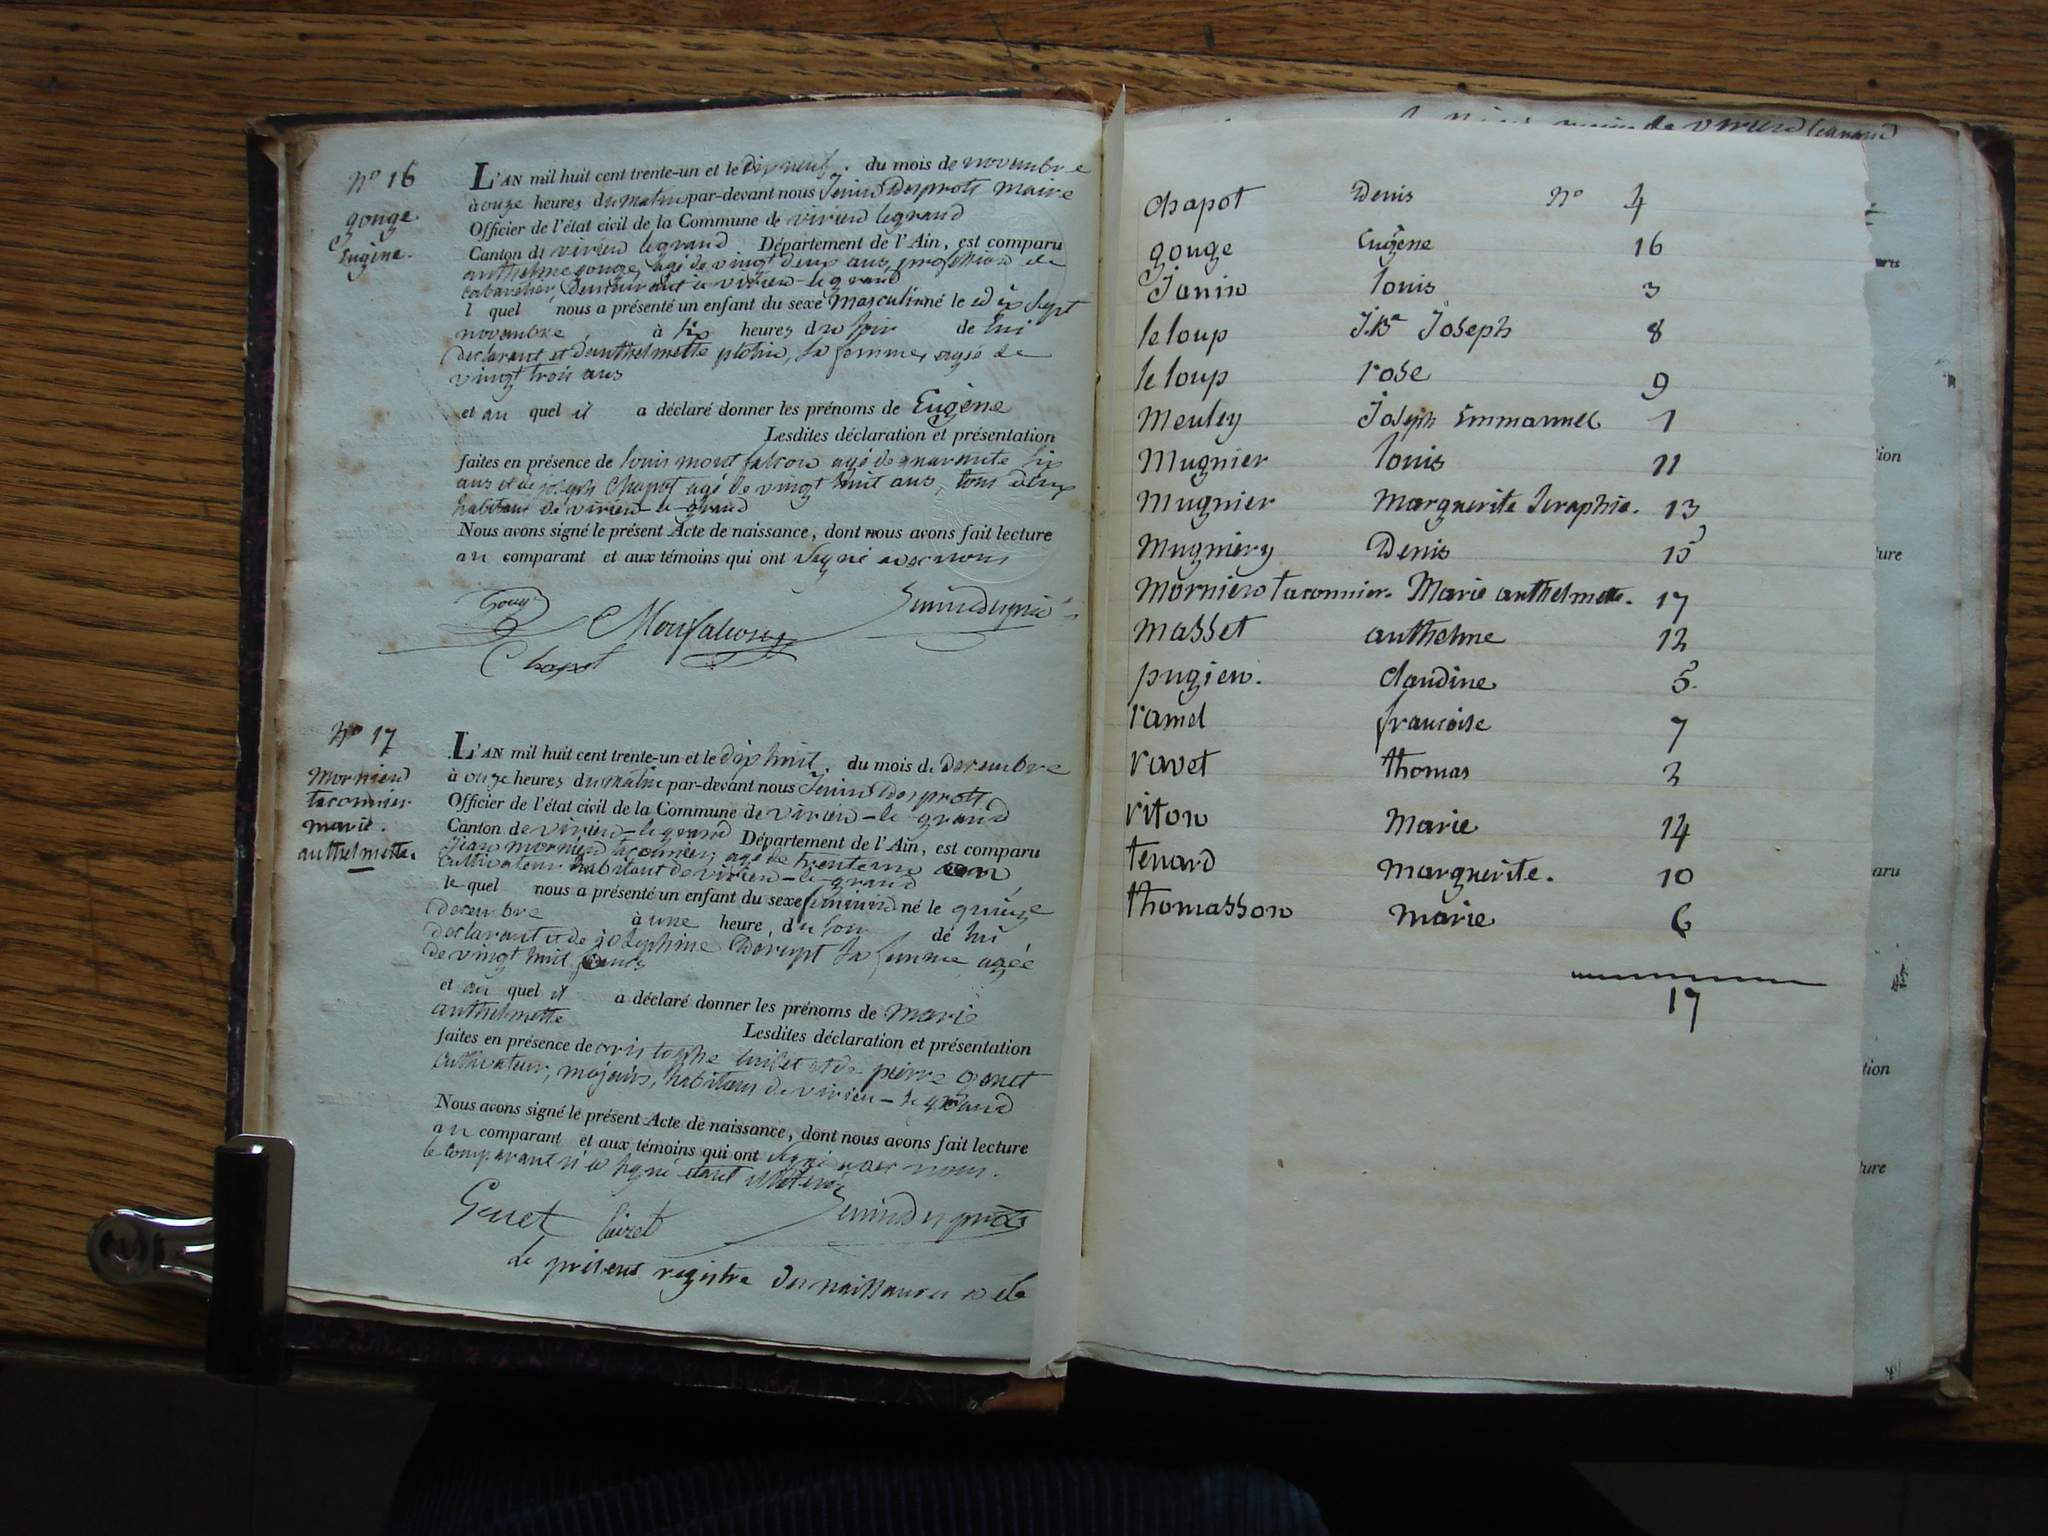 N° 16
gouge
Eugène.
L'AN mil huit cent trente-un et le dix neuf. du mois de novembre
à onze heures du matin par-devant nous Jenin Desprots maire
Officier de l'état civil de la Commune de virieu legrand
Canton de virieu legrand Département de l'Ain, est comparu
anthelme gouge, agé de vingt deux ans, profession de
cabaretier, Demeurant à virieu-le grand
l quel nous a présenté un enfant du sexe masculin né le dix sept
novembre à six heures du soir de lui
declarant et d'anthelmette , sa femme, agée de
vingt trois ans
et au quel il a déclaré donner les prénoms de Eugène
Lesdites déclaration et présentation
faites en présence de louis montfalcon agé de quarante six
ans et de joseph Chapot agé de vingt huit ans, tous deux
habitans de virieu-le-grand
Nous avons signé le présent Acte de naissance, dont nous avons fait lecture
au comparant et aux témoins qui ont signé avec nous
Gouge Monfalcon
Chapot
N° 17
mornieu
taconnier
marie.
anthelmette.
L'AN mil huit cent trente-un et le dix huit. du mois de decembre
à onze heures du matin par-devant nous Jenin Desprots
Officier de l'état civil de la Commune de virieu-le grand
Canton de virieu-le grand Département de l'Ain, est comparu
jean mornieu taconnier, agé de trente un ans
cultivateur habitant de virieu-le grand
le quel nous a présenté un enfant du sexe féminin né le quinze
decembre à une heure, du soir de lui
declarant et de josephine Derupt sa femme agée
de vingt huit ans
et au quel il a déclaré donner les prénoms de marie
anthelmette Lesdites déclaration et présentation
faites en présence de cristophe et de pierre gonet
cultivateur, majeurs, habitans de virieu-le grand
Nous avons signé le présent Acte de naissance, dont nous avons fait lecture
au comparant et aux témoins qui ont signé avec nous.
le comparant n'a signé etant illiteré
Le présent registre des naissances
maire de virieu legrand
Chapot Denis N° 4
gouge Eugène 16
Janin louis 3
leloup J.Bte Joseph 8
le loup rose 9
Meuley Joseph Emmanuel 1
Mugnier louis 11
Mugnier Marguerite Seraphie. 13
Mugniery Denis 15
Mornieu taconnier. Marie anthelmette. 17
Masset anthelme 12
pugieu. Claudine 5
ramel francoise 7
ravet thomas 2
riton Marie 14
tenard Marguerite. 10
thomasson Marie 6
17
aru
tion
ture
aru
tion
ture